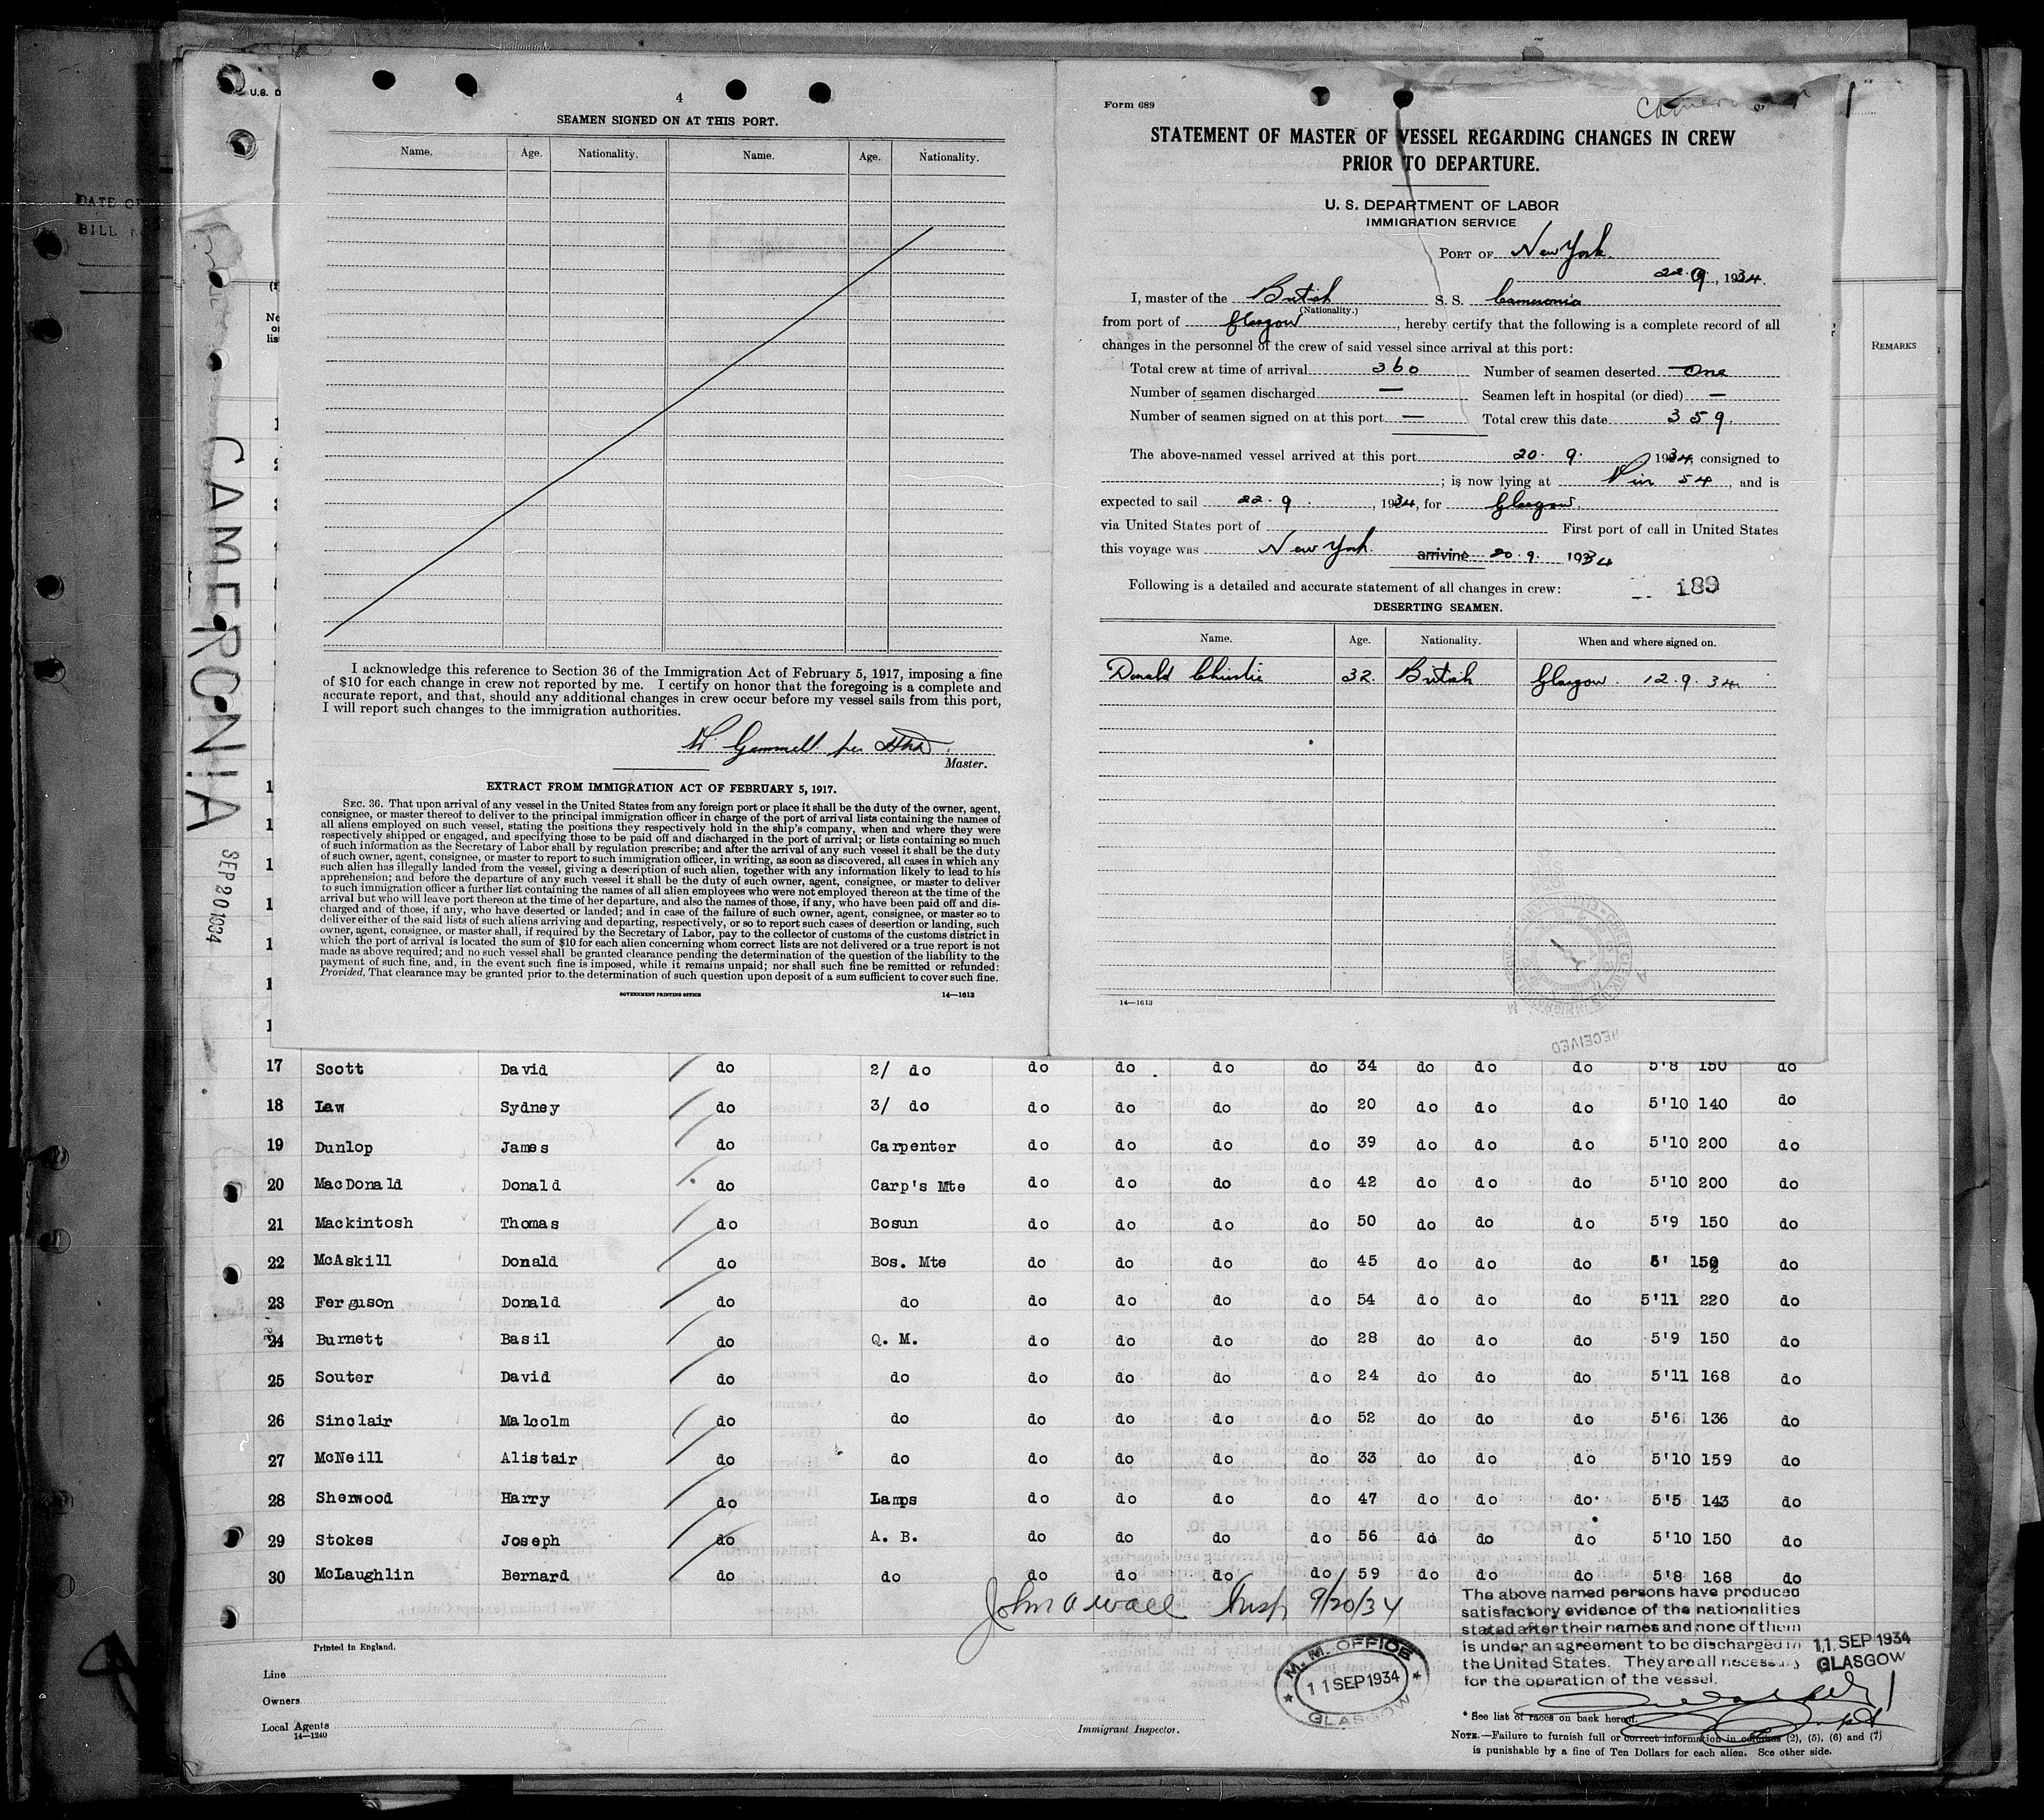 DATE OF
BILL
U.S. D
CAMERONIA
SEP 20 1934
4
SEAMEN SIGNED ON AT THIS PORT.
Name. Age. Nationality. Name. Age. Nationality.
I acknowledge this reference to Section 36 of the Immigration Act of February 5, 1917, imposing a fine
of $10 for each change in crew not reported by me. I certify on honor that the foregoing is a complete and
accurate report, and that, should any additional changes in crew occur before my vessel sails from this port,
I will report such changes to the immigration authorities.
Gemmell per
Master.
EXTRACT FROM IMMIGRATION ACT OF FEBRUARY 5, 1917.
SEC. 36. That upon arrival of any vessel in the United States from any foreign port or place it shall be the duty of the owner, agent,
consignee, or master thereof to deliver to the principal immigration officer in charge of the port of arrival lists containing the names of
all aliens employed on such vessel, stating the positions they respectively hold in the ship's company, when and where they were
respectively shipped or engaged, and specifying those to be paid off and discharged in the port of arrival; or lists containing so much
of such information as the Secretary of Labor shall by regulation prescribe; and after the arrival of any such vessel it shall be the duty
of such owner, agent, consignee, or master to report to such immigration officer, in writing, as soon as discovered, all cases in which any
such alien has illegally landed from the vessel, giving a description of such alien, together with any information likely to lead to his
apprehension; and before the departure of any such vessel it shall be the duty of such owner, agent, consignee, or master to deliver
to such immigration officer a further list containing the names of all alien employees who were not employed thereon at the time of the
arrival but who will leave port thereon at the time of her departure, and also the names of those, if any, who have been paid off and dis-
charged and of those, if any, who have deserted or landed; and in case of the failure of such owner, agent, consignee, or master so to
deliver either of the said lists of such aliens arriving and departing, respectively, or so to report such cases of desertion or landing, such
owner, agent, consignee, or master shall, if required by the Secretary of Labor, pay to the collector of customs of the customs district in
which the port of arrival is located the sum of $10 for each alien concerning whom correct lists are not delivered or a true report is not
made as above required; and no such vessel shall be granted clearance pending the determination of the question of the liability to the
payment of such fine, and, in the event such fine is imposed, while it remains unpaid; nor shall such fine be remitted or refunded:
Provided, That clearance may be granted prior to the determination of such question upon deposit of a sum sufficient to cover such fine.
GOVERNMENT PRINTING OFFICE 14—1613
Form 689
STATEMENT OF MASTER OF VESSEL REGARDING CHANGES IN CREW
PRIOR TO DEPARTURE.
U. S. DEPARTMENT OF LABOR
IMMIGRATION SERVICE
PORT OF New York.
22.9., 1934.
I, master of the British S. S. Cameronia
(Nationality.)
from port of Glasgow, hereby certify that the following is a complete record of all
changes in the personnel of the crew of said vessel since arrival at this port:
Total crew at time of arrival 360 Number of seamen deserted One
Number of seamen discharged — Seamen left in hospital (or died) —
Number of seamen signed on at this port — Total crew this date 359.
The above-named vessel arrived at this port 20.9. 1934, consigned to
; is now lying at Pier 54, and is
expected to sail 22.9., 1934, for Glasgow.
via United States port of First port of call in United States
this voyage was New York. arriving 20.9. 1934
Following is a detailed and accurate statement of all changes in crew:
189
DESERTING SEAMEN.
Name. Age. Nationality. When and where signed on.
Donald Christie 32. British Glasgow. 12.9.34.
14—1613
RECEIVED
REMARKS
17 Scott David do 2/ do do do do do 34 do do do 5'8 150 do
18 Law Sydney do 3/ do do do do do 20 do do do 5'10 140 do
19 Dunlop James do Carpenter do do do do 39 do do do 5'10 200 do
20 MacDonald Donald do Carp's Mte do do do do 42 do do do 5'10 200 do
21 Mackintosh Thomas do Bosun do do do do 50 do do do 5'9 150 do
22 McAskill Donald do Bos. Mte do do do do 45 do do do 5' 150 do
23 Ferguson Donald do do do do do do 54 do do do 5'11 220 do
24 Burnett Basil do Q. M. do do do do 28 do do do 5'9 150 do
25 Souter David do do do do do do 24 do do do 5'11 168 do
26 Sinclair Malcolm do do do do do do 52 do do do 5'6 136 do
27 McNeill Alistair do do do do do do 33 do do do 5'10 159 do
28 Sherwood Harry do Lamps do do do do 47 do do do 5'5 143 do
29 Stokes Joseph do A. B. do do do do 56 do do do 5'10 150 do
30 McLaughlin Bernard do do do do do do 59 do do do 5'8 168 do
John A Wall Insp 9/20/34
The above named persons have produced
satisfactory evidence of the nationalities
stated after their names and none of them
is under an agreement to be discharged in
the United States. They are all necessary
for the operation of the vessel.
11 SEP 1934
GLASGOW
M. M. OFFICE
11 SEP 1934
GLASGOW
Printed in England.
Line
Owners
Local Agents
14—1240
Immigrant Inspector.
* See list of races on back hereof.
NOTE.—Failure to furnish full or correct information in columns (2), (5), (6) and (7)
is punishable by a fine of Ten Dollars for each alien. See other side.